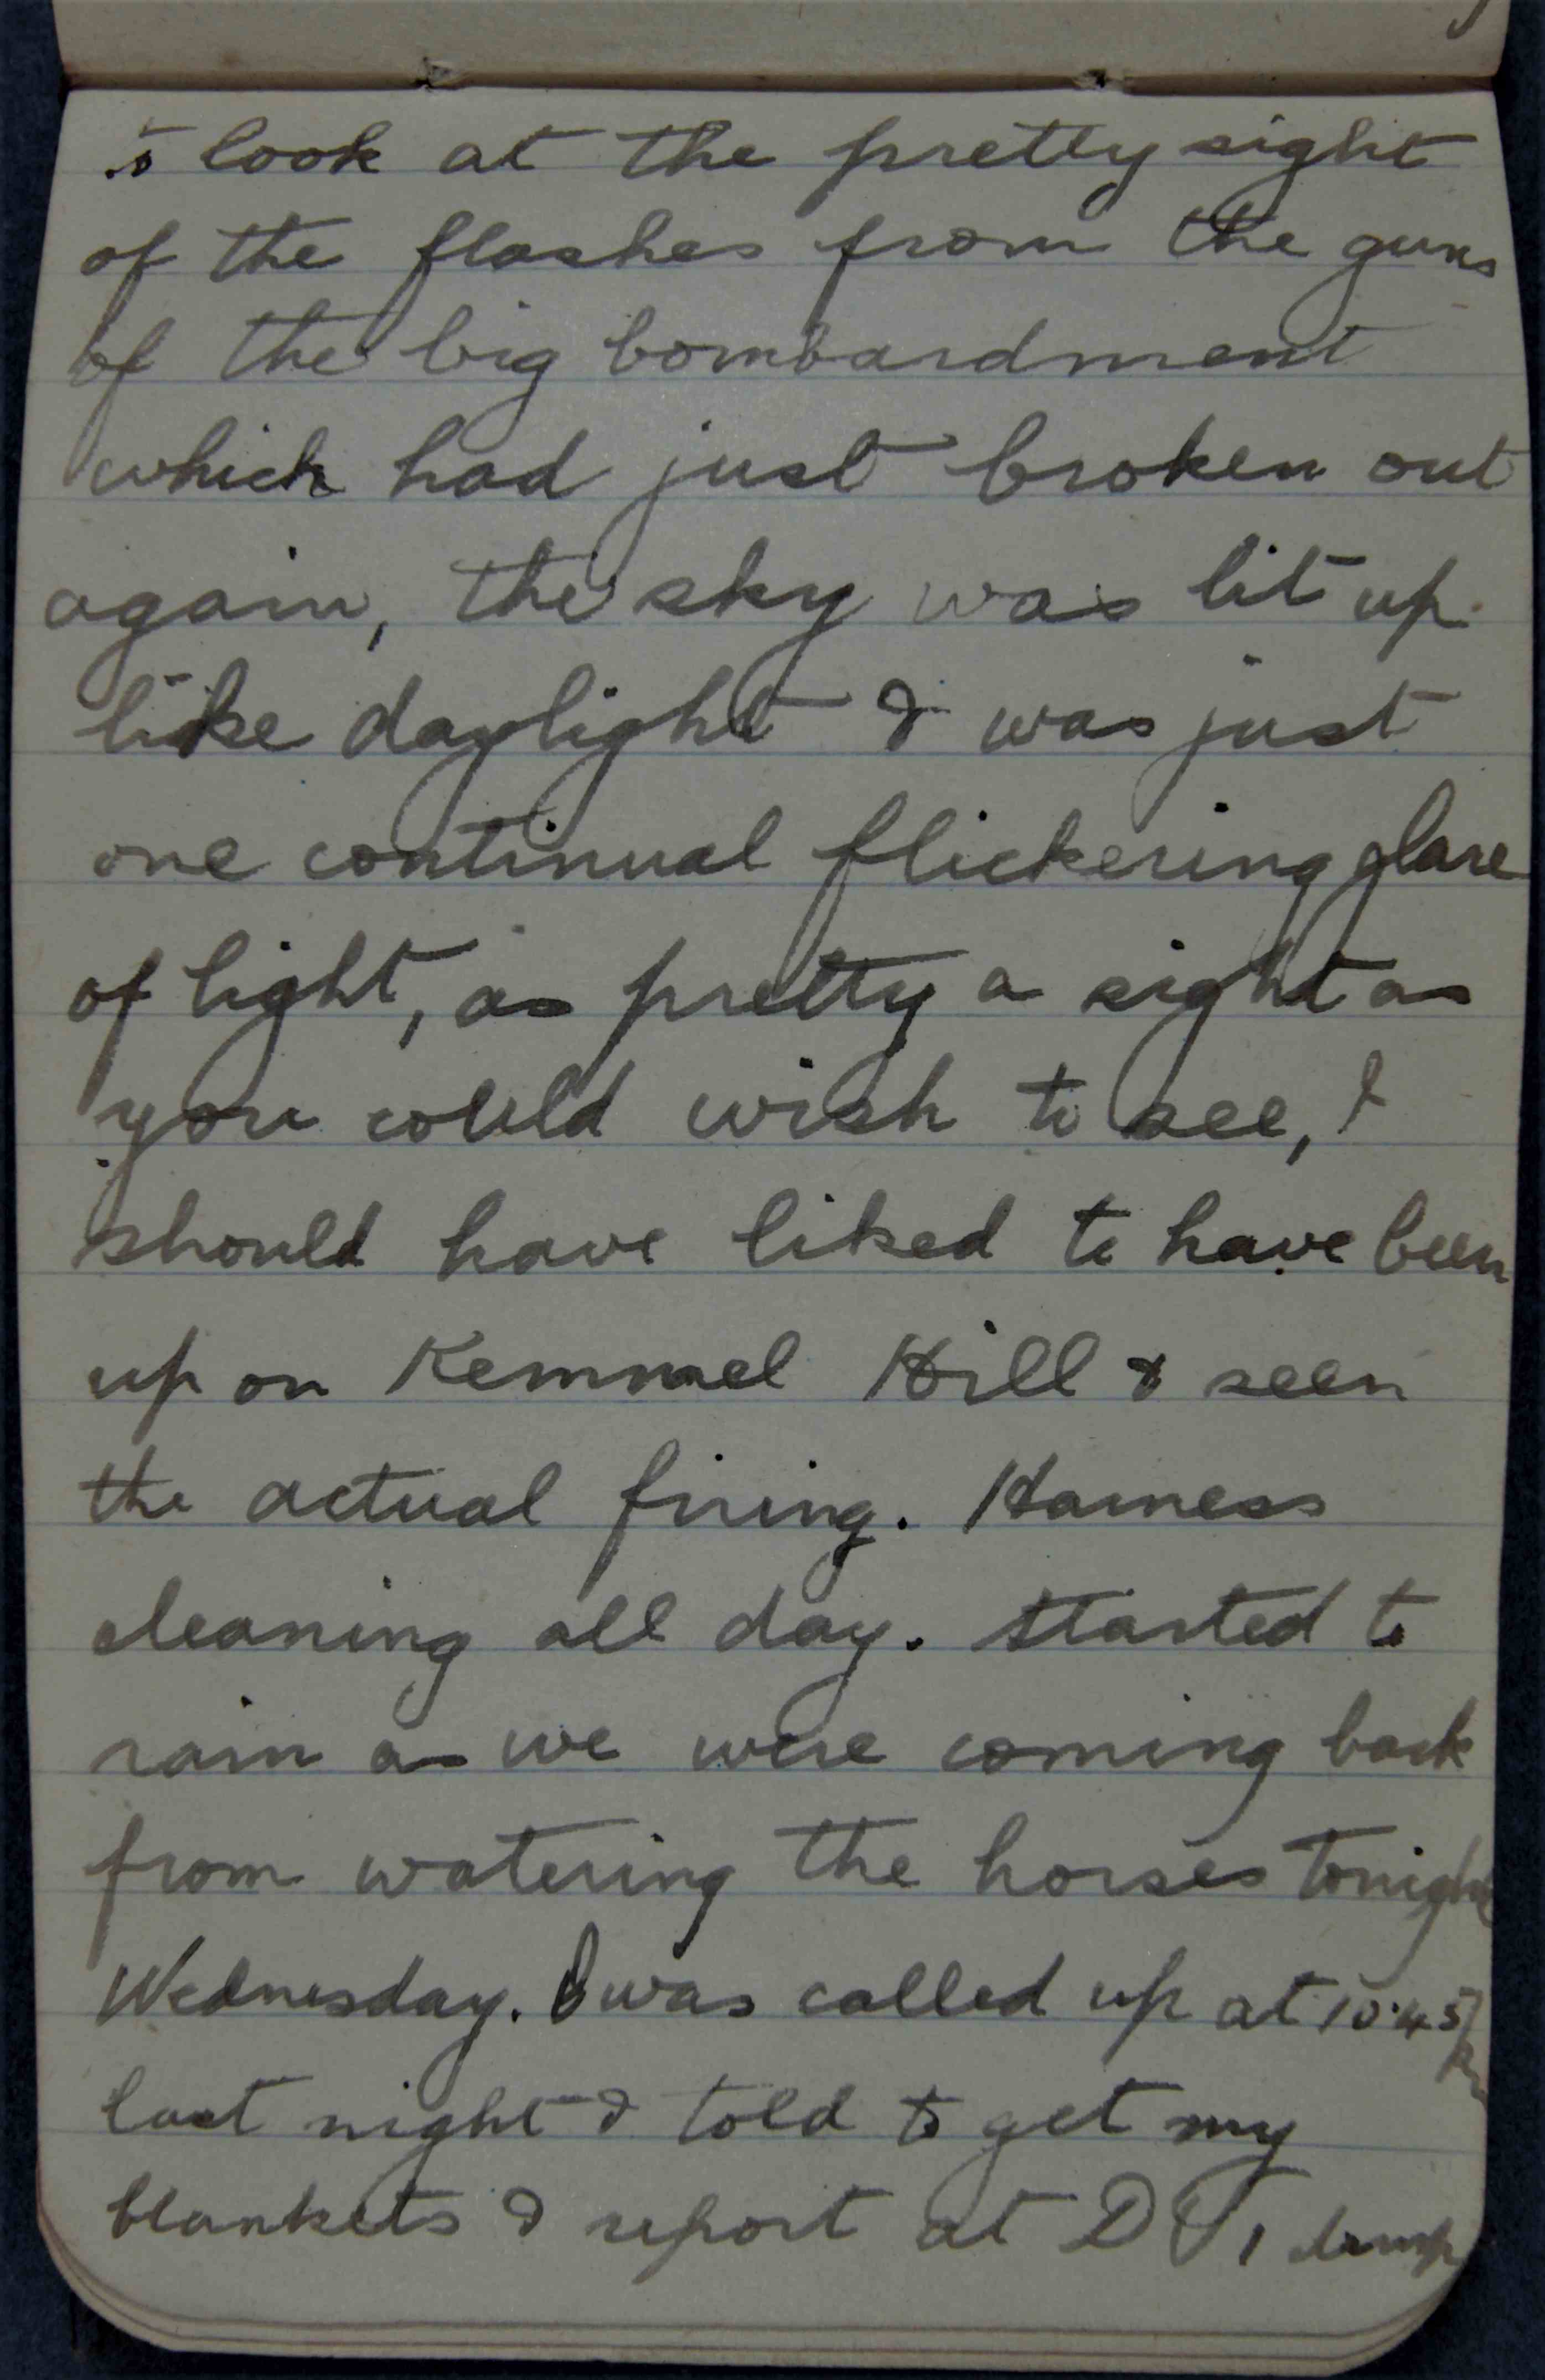 to look at the pretty sight
of the flashes from the guns
of the big bombardment
which had just broken out
again, the sky was lit up
like daylight & was just
one continual flickering glare
of light, as pretty a sight as
you could wish to see, I
should have liked to have been
up on Kemmel Hill & seen
the actual firing. Harness
cleaning all day. Started to
rain as we were coming back
from watering the horses tonight
Wednesday. I was called up at 10.45 pm
last night & told to get my
blankets & report at dump